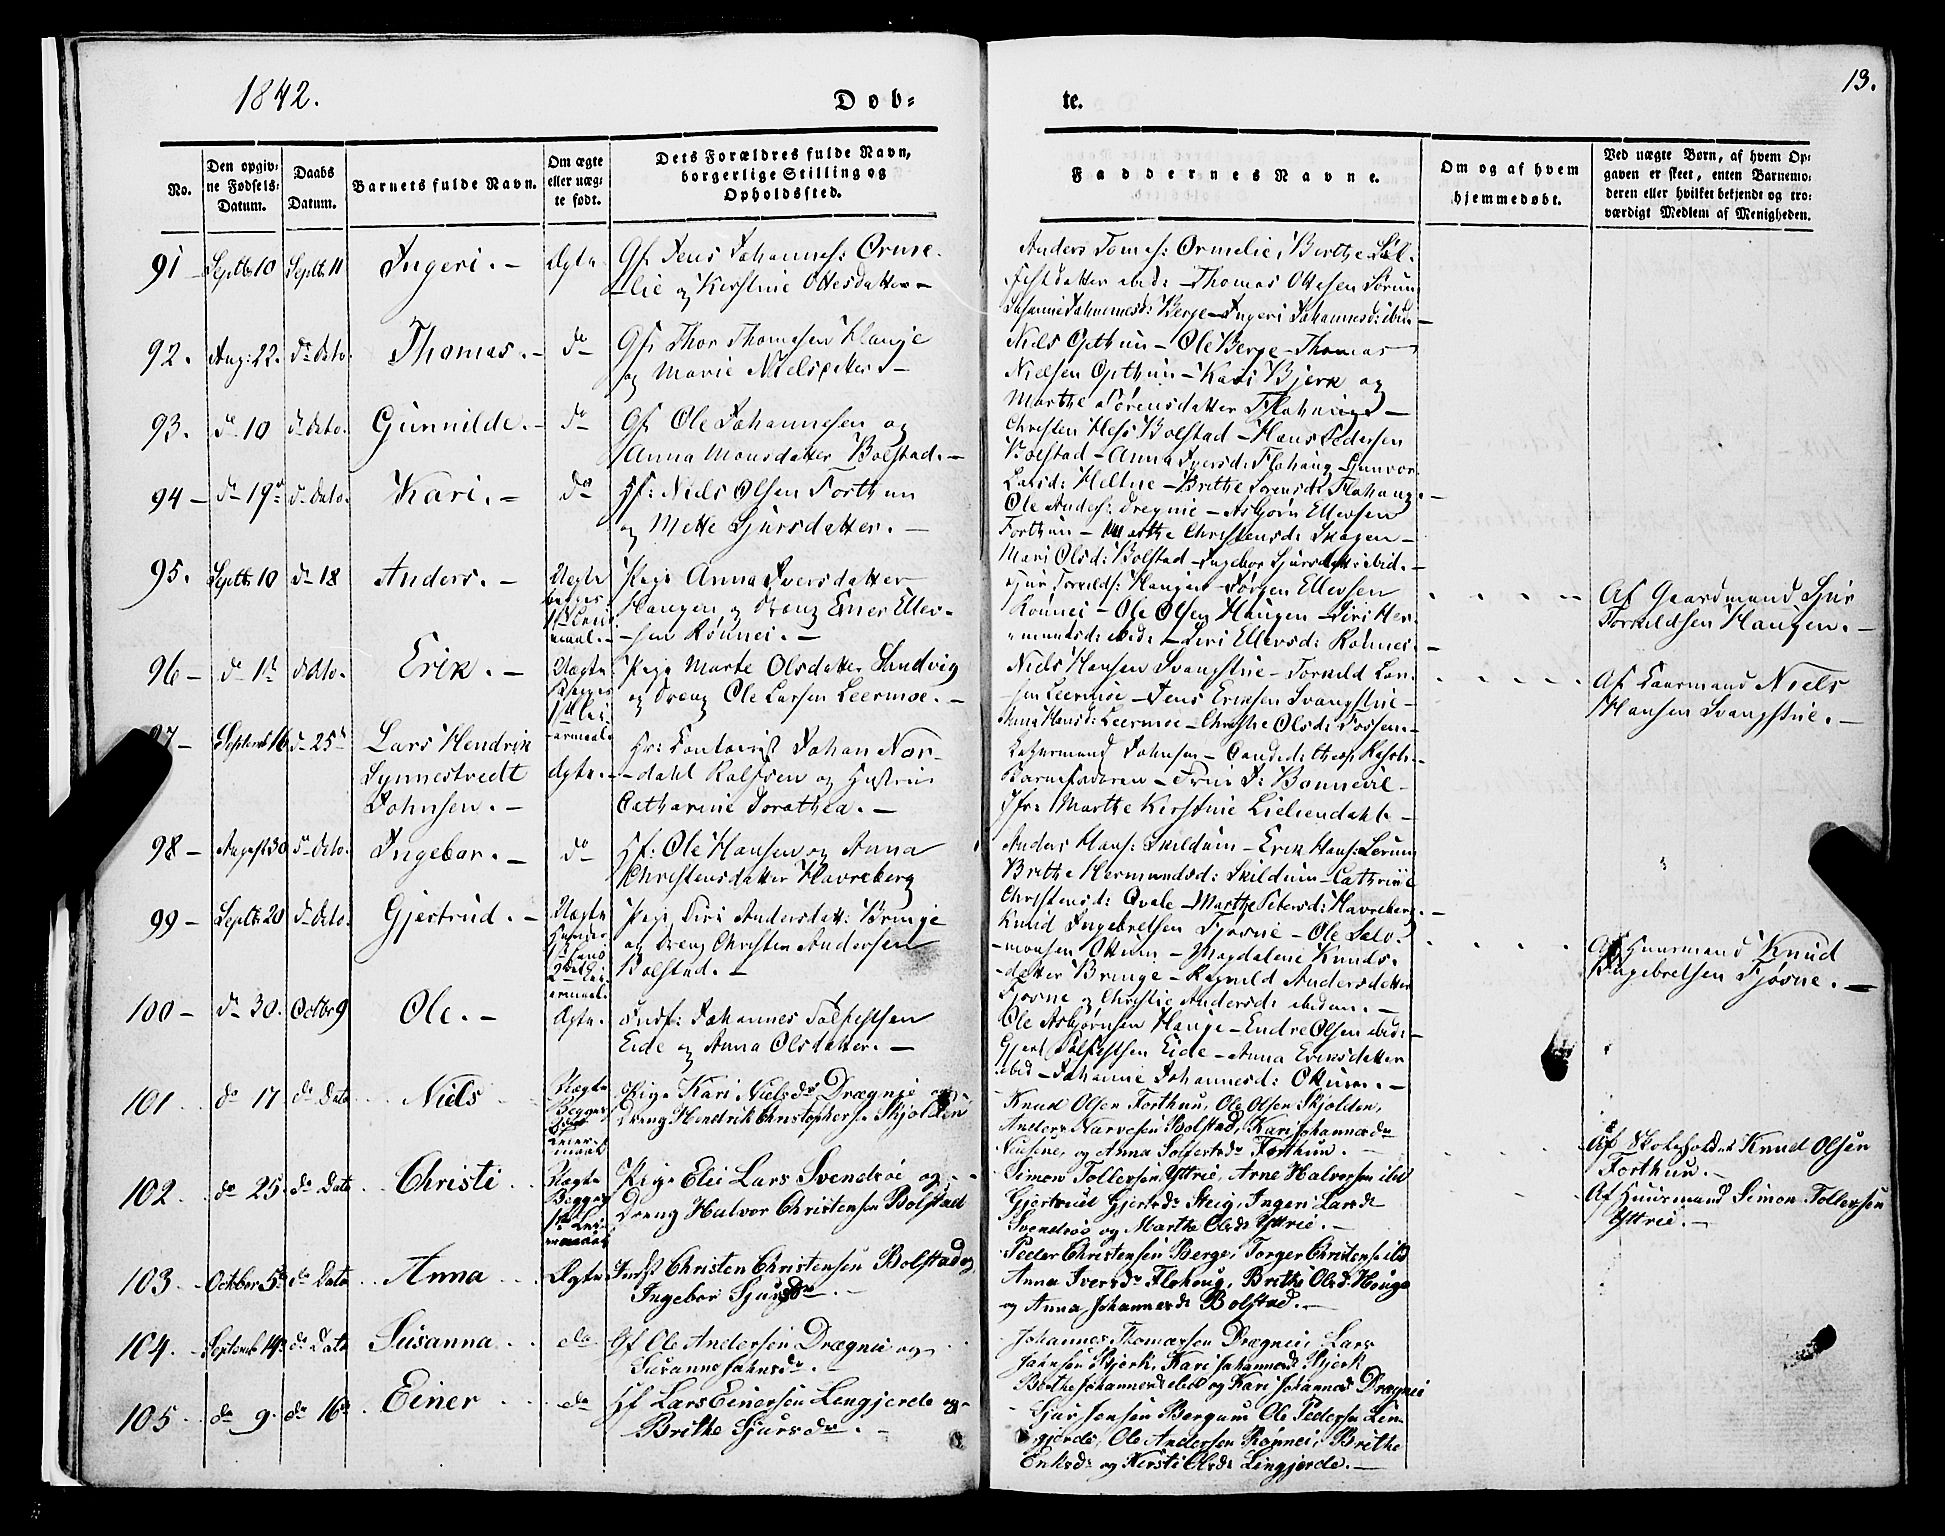 1842.
Dob=
te.
13.
No.
Den opgiv=
ne Fødsels=
Datum.
Daabs
Datum.
Barnets fulde Navn.
Om ægte
eller uæg=
te født.
Dets Forældres fulde Navn,
borgerlige Stilling og
Opholdssted.
Faddernes Navne.
Om og af hvem
hjemmedøbt.
Ved uægte Børn, af hvem Op=
gaven er skeet, enten Barnemo=
deren eller hvilket bekjendt og tro=
værdigt Medlem af Menigheden.
91 – Septb: 10 Septb: 11 Ingeri. – Ægte Gf. Jens Johannes: Orme=
lie og Kerstine Ottesdatter –
Anders Tomes: Ormelie, Berthe Sol=
festdatter ibid: – Thomas Ottesen Sørum
Johannesd: Berge – Ingeri Johannesd: ibid –
92. Aug: 22. do dato. Thomas. – do Gf: Thor Thomesen Hauge
og Marie Nielsdatter –
Niels Opthun – Ole Berge – Thomas
Nielsen Opthun – Kari Bjerk og
Marthe Sørensdatter Flohaug –
93. do 10 do dato. Gunnilde. – do Gf Ole Johannesen og
Anna Monsdatter Bolstad. –
Christen Hess Bolstad – Hans Pedersen
Bolstad – Anna Iversd: Flohaug – Gunvor
Larsd: Heltne – Brithe Sørensd: Flohaug. –
94 – do 19de do dato. Kari. – do Hf: Niels Olsen Forthun
og Mette Sjursdatter. –
Ole Andes: Dregnie – Asbjørn Ellevsen
Forthun – Marthe Christensd: Skagen –
Mari Olsd: Bolstad – Ingebor Sjursdatter ibid. –
95. Septb: 10 do 18 Anders. – Uægte
begges
1ste Leier=
maal. –
Pige Anna Iversdatter
Haugen og Dreng Einer Ellev=
sen Rønnei. –
Sjur Torkilds: Haugen – Jørgen Ellevsen
Rønnei – Ole Olsen Haugen – Siri Her=
mundsd: ibid: – Siri Ellevsd: Rønnei. –
Af Gaardmand Sjur
Torkildsen Haugen. –
96 – do 1ste do dato. Erik. – Uægte
begges
1ste Lei=
ermaal
Pige Marte Olsdatter Sandvig
og Dreng Ole Larsen Leermoe. –
Niels Hansen Svangstue – Torkild Lar=
sen Leermoe – Jens Eriksen Svangstue –
Hansd: Leermoe – Christie Olsd: Fossen. –
Af Huusmand Niels
Hansen Svangstue. –
97 – Septemb 16 do 25de Lars Hendrik
Synnestvedt
Johnsen. –
Ægte. – Hr: Contorist Johan Nor=
dahl Rolfsen og Hustrue
Catharine Dorothea. –
Johnsen – Candidt: theol:
Barnefaderen – Frue D: Bonnevie –
Jfr: Marthe Kirstine Lieliendahl –
98 – August 30 do dato. Ingebor. – do Hf: Ole Hansen og Anna
Christensdatter Havreberg
Anders Hans: Skildum – Erik Hans: Lerum
Brithe Hermundsd: Skildum – Cathrine
Christensd: Qvale – Marthe Petersd: Havreberg. –
99 – Septb: 20 do dato. Gjertrud. – Uægte
Hendes
1ste hans
2det Lei=
ermaal.
Pige Siri Andersdatt: Bringe
og Dreng Christen Andersen
Bolstad. –
Knud Ingebretsen Fjøsne – Ole Salo=
monsen Ottum – Magdalene Knuds=
datter Bringe – Ragnild Andersdatter
Fjøsne og Christie Andersd: ibidem. –
Af Huusmand Knud
Ingebretsen Fjøsne. –
100 – do 30. Octbr 9 Ole. – Ægte. Indf: Johannes Solfestsen
Eide og Anna Olsdatter. –
Ole Asbjørnsen Hauge – Endre Olsen ibid: –
Gjert Solfestsen Eide – Anna Eriksdatter
ibid – Johanne Johannesd: Ottum. –
101 do 17 do dato Niels Uægte
Begges
Leier=
maal
Pige Kari Nielsdr Drægnie og
Dreng Hendrik Christophersen Skjolden
Knud Olsen Forthun, Ole Olsen Skjolden,
Anders Narvesen Bolstad, Kari Johannesdr
og Anna Solfestsdr Forthun. –
Af Skoleholder Knud Olsen
Forthun. –
102 do 25 do Dato Christi Uægte
Begges
1ste Lei=
ermaal
Pige Elie Lars Svendsøe og
Dreng Halvor Christensen Bolstad
Simon Tollefsen Yttrie, Arne Halvorsen ibid
Gjertrud Gjertsdr Steig, Ingeri Larsdr
Svendsøe og Marthe Olsdr Yttrie. –
Af Huusmand Simon Tollefsen
Yttrie. –
103 October 5te do Dato Anna Ægte Indst Christen Christensen Bolstad og
Ingebor Sjursdr. –
Peder Christensen Berge, Torger Christens ibid
Anna Iversdr Flohoug, Brithe Olsdr Houge
og Anna Johannesdr Bolstad. –
104. Septemb 14de do Dato Susanna do Gf Ole Andersen Drægnie og
Susanne Johnsdr.
Johannes Thomassen Drægnei, Lars
Johnsen Bjerk, Kari Johannesdr Bjerk
Berthe Johannesdr ibid og Kari Johannesdr Drægnei
105 do 9. do 16de Einer do Hf Lars Einersen Lengjerde og
Brithe Sjursdr. –
Sjur Jensen Bergum Ole Pedersen Len=
gjerde, Ole Andersen Rønnei, Brithe
Eriksdr og Kersti Olsdr Lengjerde. –